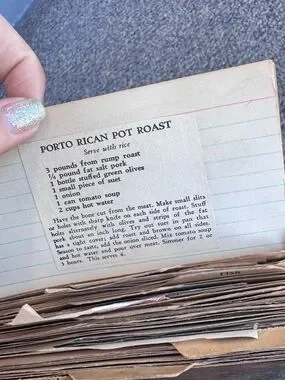 PORTO RICAN POT ROAST
Serve with rice
3 pounds from rump roast
¼ pound fat salt pork
1 bottle stuffed green olives
1 small piece of suet
1 onion
1 can tomato soup
2 cups hot water
Have the bone cut from the meat. Make small slits
or holes with sharp knife on each side of roast. Stuff
holes alternately with olives and strips of the fat
pork about an inch long. Try out suet in pan that
has a tight cover; add roast and brown on all sides.
Season to taste, add the onion sliced. Mix tomato soup
and hot water and pour over meat. Simmer for 2 or
3 hours. This serves 6.